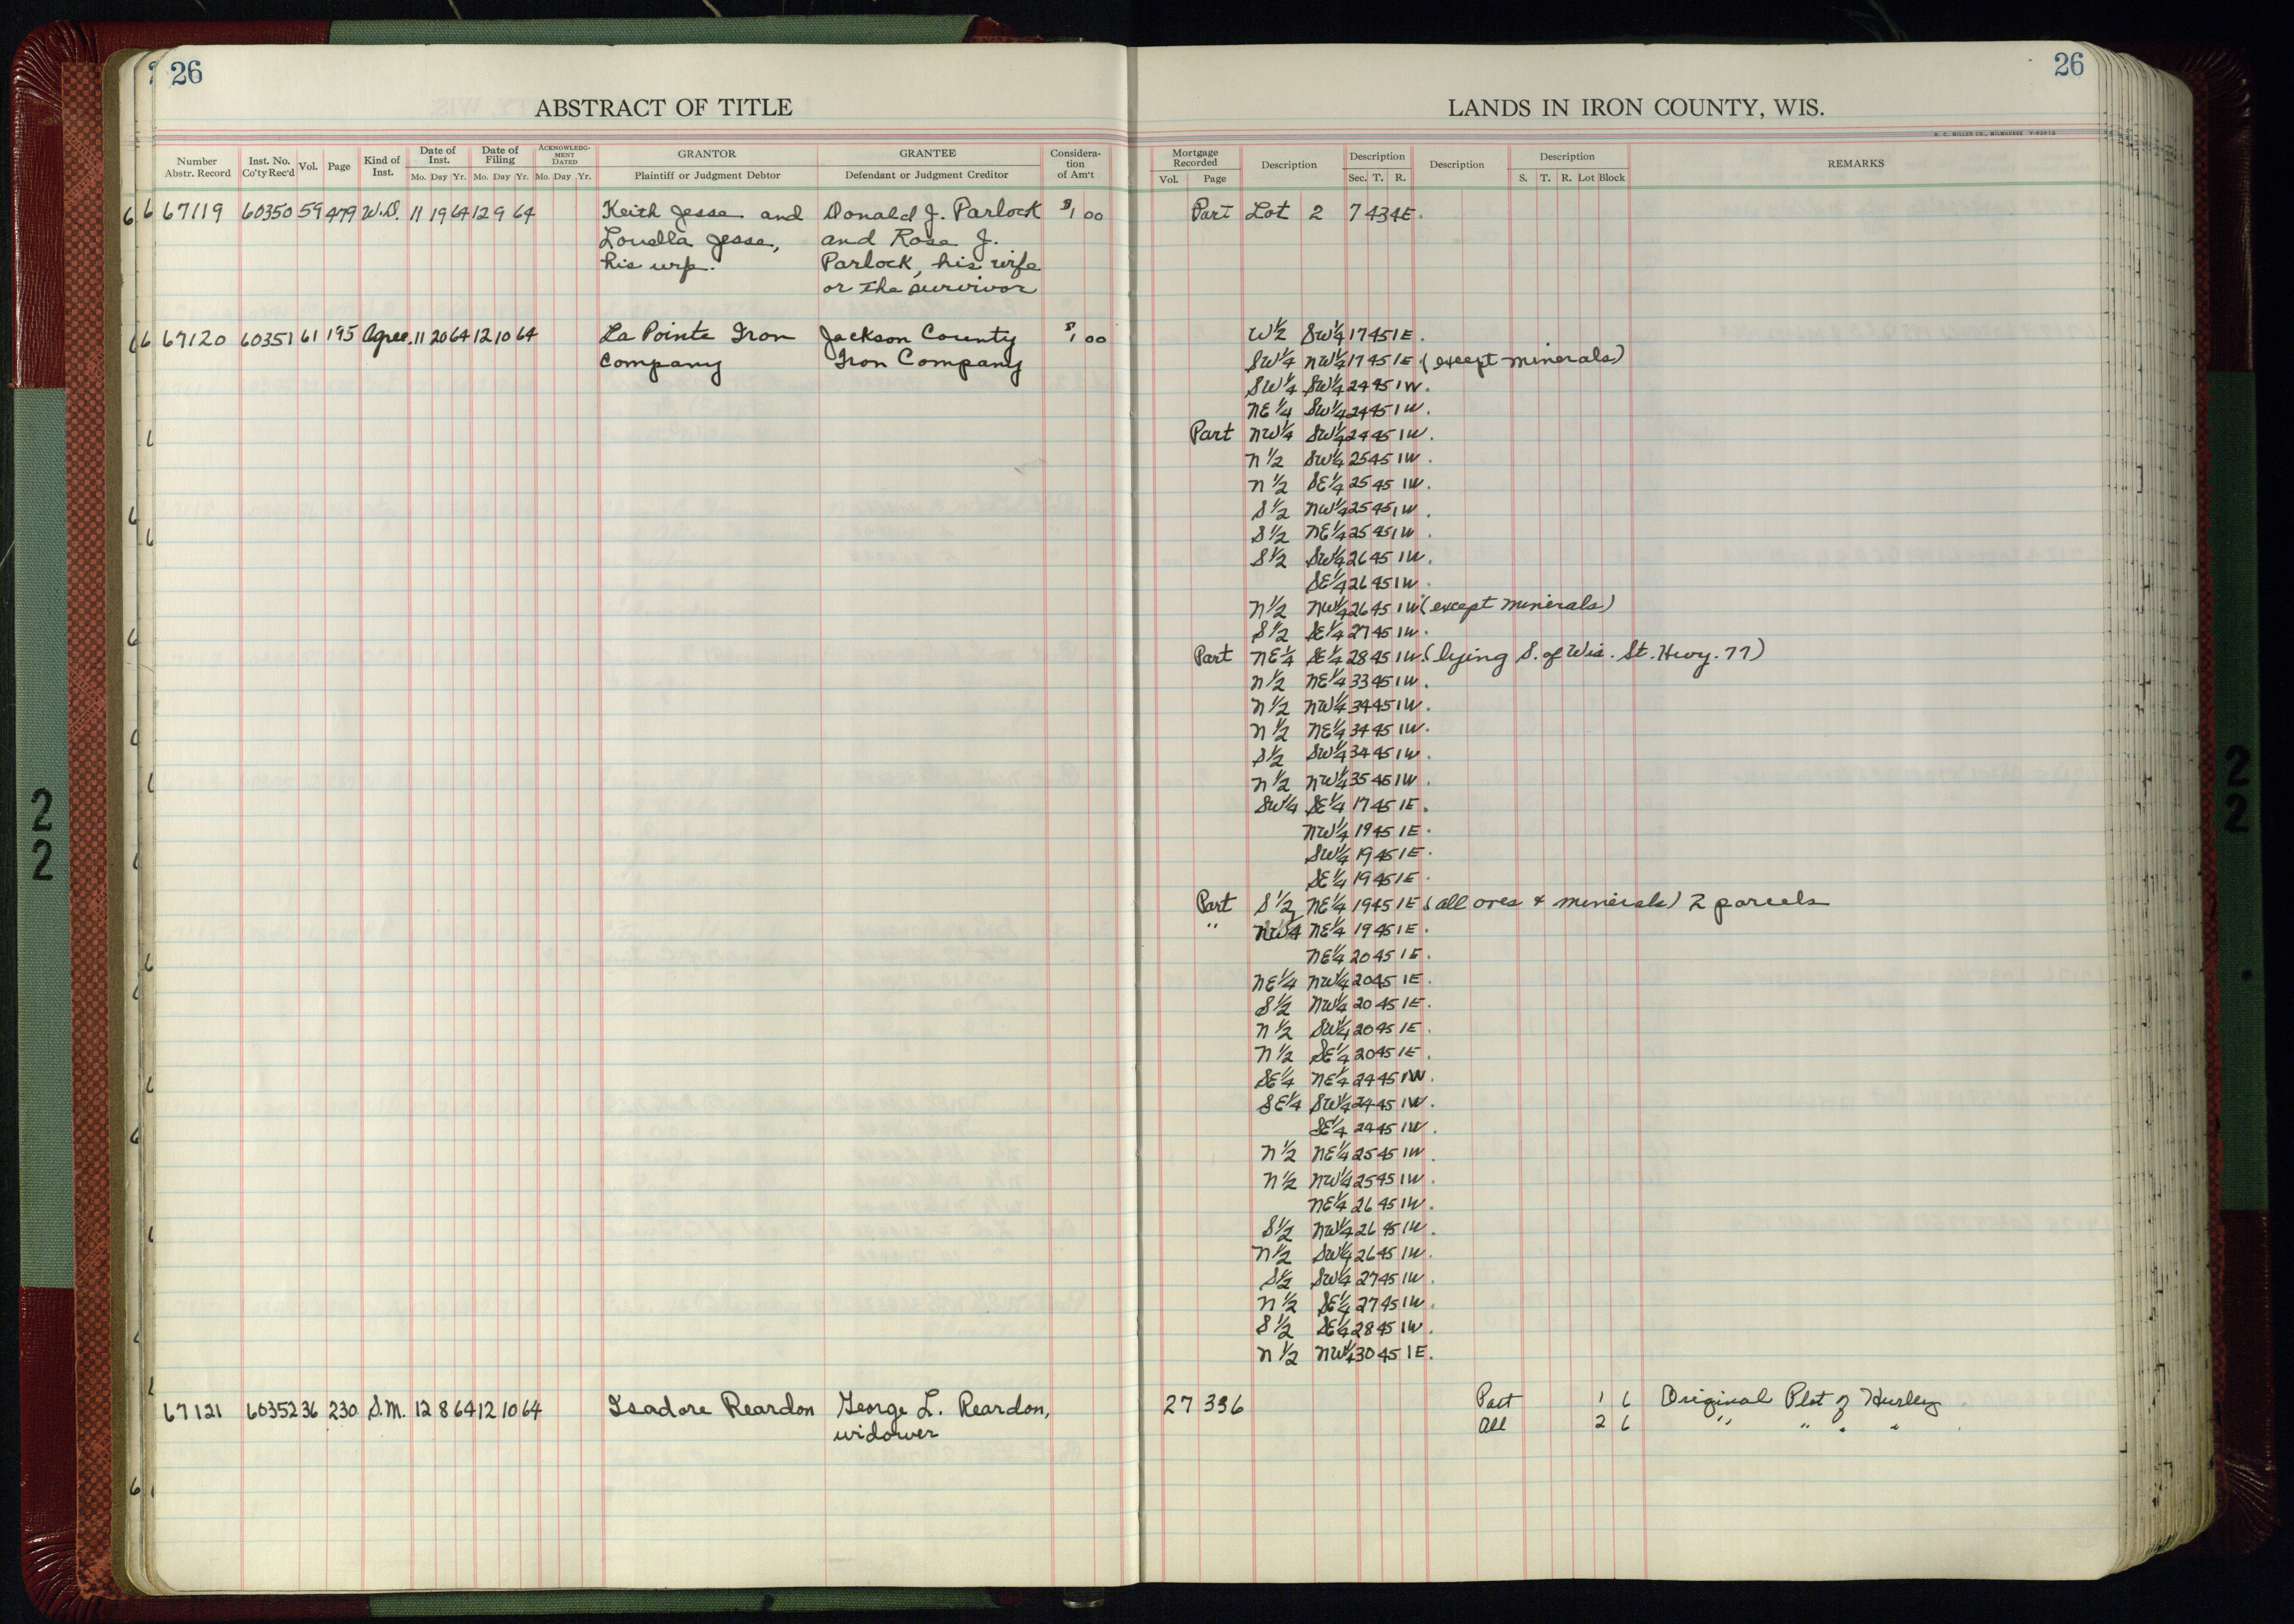 26
26
ABSTRACT OF TITLE
LANDS IN IRON COUNTY, WIS.
H. C. MILLER CO., MILWAUKEE Y-82912
Number Abstr. Record Inst. No. Co'ty Rec'd Vol. Page Kind of Inst. Date of Inst. Mo. Day Yr. Date of Filing Mo. Day Yr. ACKNOWLEDGMENT DATED Mo. Day Yr. GRANTOR Plaintiff or Judgment Debtor GRANTEE Defendant or Judgment Creditor Consideration of Am't
Mortgage Recorded Vol. Page Description Description Sec. T. R. Description Description S. T. R. Lot Block REMARKS
67119 60350 59 479 W.D. 11 19 64 12 9 64 Keith Jesse and Donald J. Parlock $1 00 Part Lot 2 7 43 4E.
Louella Jesse, and Rose J.
his wf. Parlock, his wife
or the survivor
67120 60351 61 195 Agree. 11 20 64 12 10 64 La Pointe Iron Jackson County $1 00 W½ SW¼ 17 45 1E.
Company Iron Company SW¼ NW¼ 17 45 1E. (except minerals)
SW¼ SW¼ 24 45 1W.
NE¼ SW¼ 24 45 1W.
Part NW¼ SW¼ 24 45 1W.
N½ SW¼ 25 45 1W.
N½ SE¼ 25 45 1W.
S½ NW¼ 25 45 1W.
S½ NE¼ 25 45 1W.
S½ SW¼ 26 45 1W.
SE¼ 26 45 1W.
N½ NW¼ 26 45 1W. (except minerals)
S½ SE¼ 27 45 1W.
Part NE¼ SE¼ 28 45 1W. (lying S. of Wis. St. Hwy. 77)
N½ NE¼ 33 45 1W.
N½ NW¼ 34 45 1W.
N½ NE¼ 34 45 1W.
S½ SW¼ 34 45 1W.
N½ NW¼ 35 45 1W.
SW¼ SE¼ 17 45 1E.
NW¼ 19 45 1E.
SW¼ 19 45 1E.
SE¼ 19 45 1E.
Part S½ NE¼ 19 45 1E (all ores + minerals) 2 parcels
" NW¼ NE¼ 19 45 1E.
NE¼ 20 45 1E.
NE¼ NW¼ 20 45 1E.
S½ NW¼ 20 45 1E.
N½ SW¼ 20 45 1E.
N½ SE¼ 20 45 1E.
SE¼ NE¼ 24 45 1W.
SE¼ SW¼ 24 45 1W.
SE¼ 24 45 1W.
N½ NE¼ 25 45 1W.
N½ NW¼ 25 45 1W.
NE¼ 26 45 1W.
S½ NW¼ 26 45 1W.
N½ SW¼ 26 45 1W.
S½ SW¼ 27 45 1W.
N½ SE¼ 27 45 1W.
S½ SE¼ 28 45 1W.
N½ NW¼ 30 45 1E.
67121 60352 36 230 S.M. 12 8 64 12 10 64 Isadore Reardon George L. Reardon, 27 336 Part 1 6 Original Plat of Hurley
widower All 2 6 " " " "
22
22